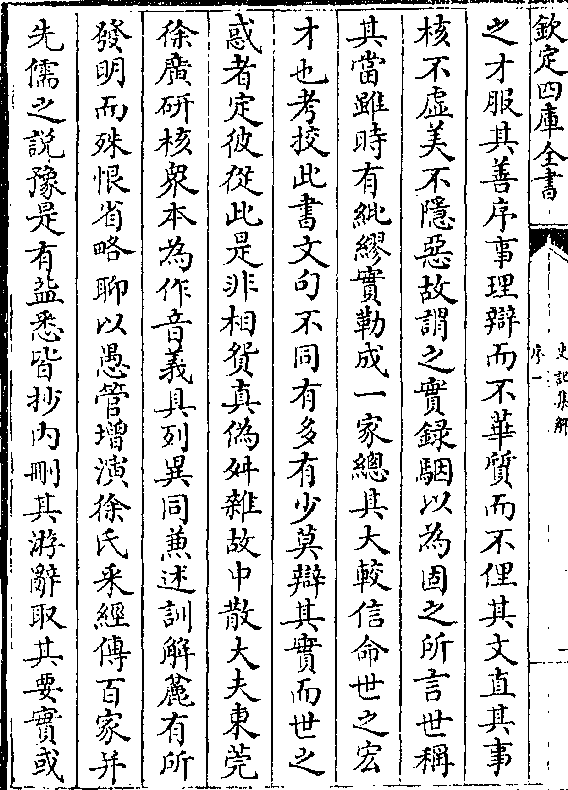 欽定四庫全書
史記集解
序一
之才服其善序事理辯而不華質而不俚其文直其事
核不虛美不隱惡故謂之實録駰以為固之所言世稱
其當雖時有紕繆實勒成一家總其大較信命世之宏
才也考挍此書文句不同有多有少莫辯其實而世之
惑者定彼從此是非相貿真偽舛雜故中散大夫東莞
徐廣研核衆本為作音義具列異同兼述訓解麄有所
發明而殊恨省略聊以愚管增演徐氏采經傳百家并
先儒之說豫是有益悉皆抄内刪其游辭取其要實或